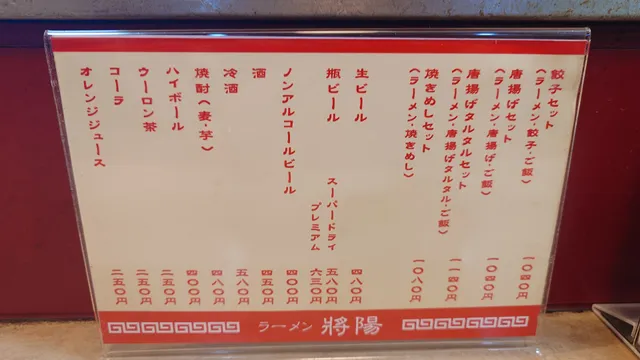 餃子セット
（ラーメン・餃子・ご飯） 一〇四〇円
唐揚げセット
（ラーメン・唐揚げ・ご飯） 一〇四〇円
唐揚げタルタルセット
（ラーメン・唐揚げタルタル・ご飯） 一一四〇円
焼きめしセット
（ラーメン・焼きめし） 一〇八〇円
生ビール 四八〇円
瓶ビール スーパードライ 五八〇円
プレミアム 六三〇円
ノンアルコールビール 四〇〇円
酒 四五〇円
冷酒 五八〇円
焼酎（麦・芋） 四八〇円
ハイボール 四〇〇円
ウーロン茶 二五〇円
コーラ 二五〇円
オレンジジュース 二五〇円
ラーメン 將陽